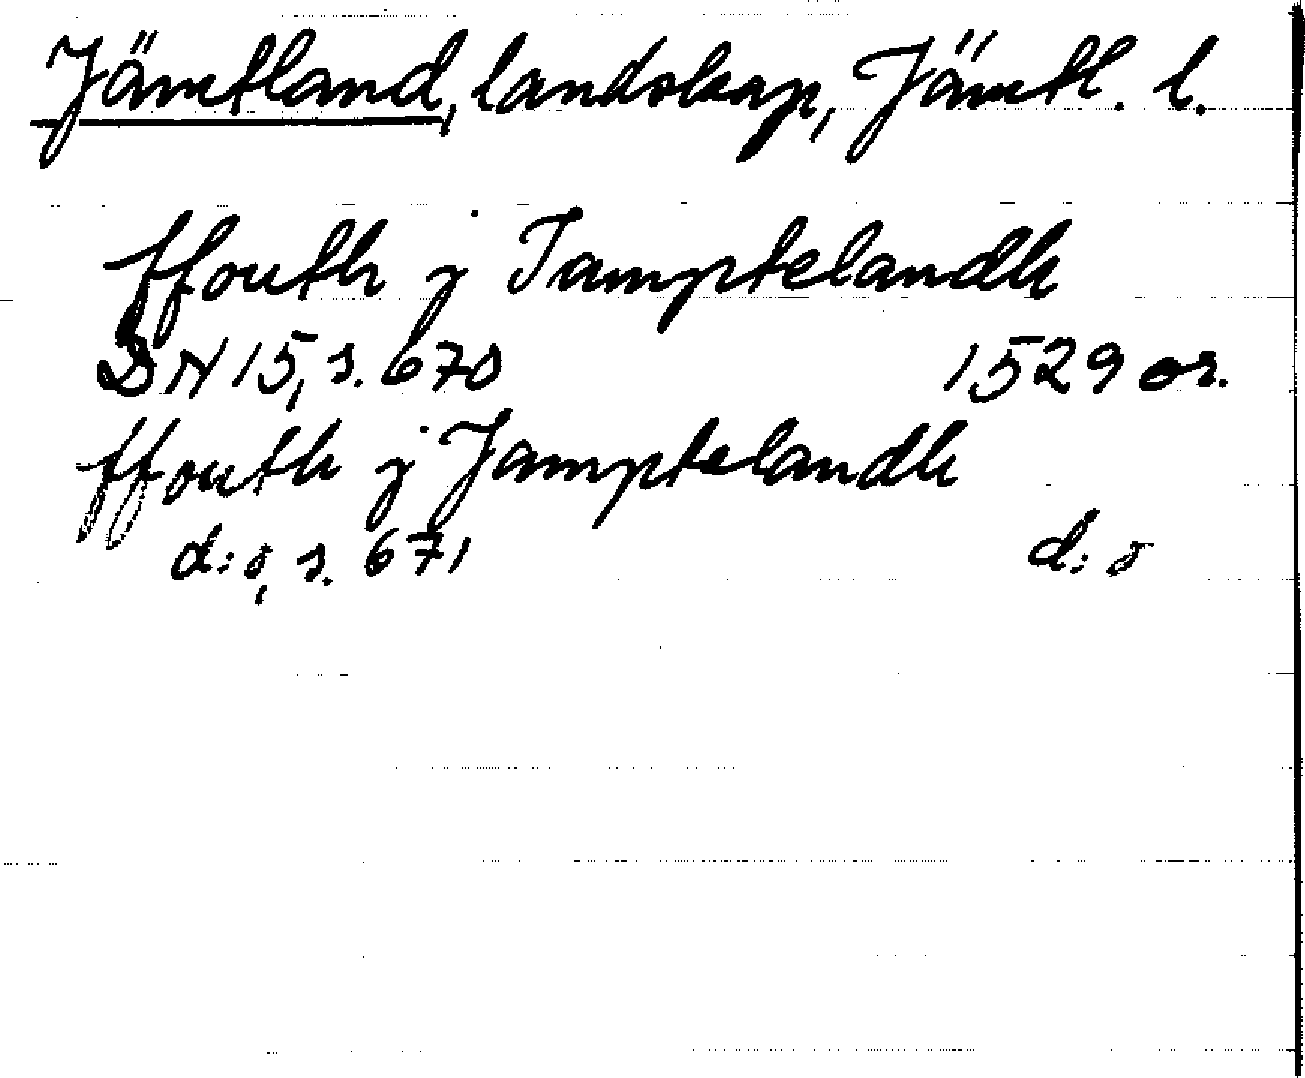 Jämtland, landskap, Jämtl. l.
ffouth j Jamptelandh
DN 15, s. 670 1529 or.
ffouth j Jamptelandh
d:o, s. 671 d:o